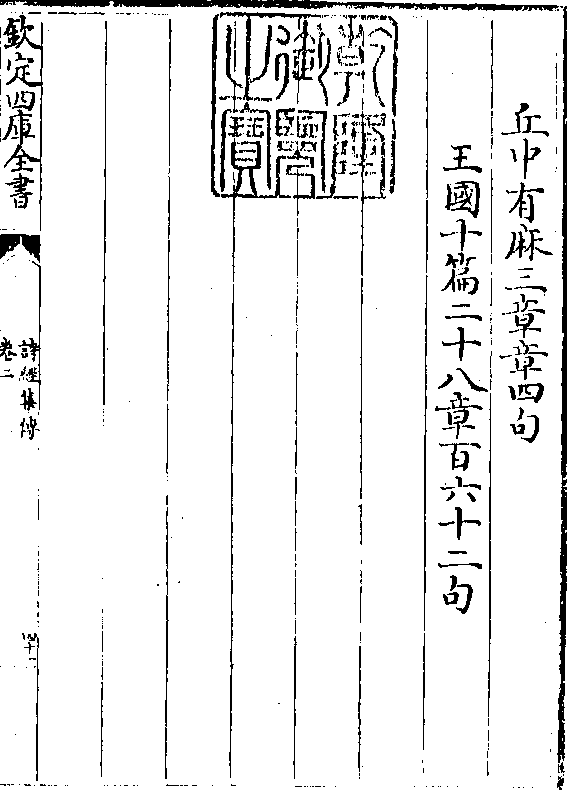 丘中有麻三章章四句
王國十篇二十八章百六十二句
乾隆御覽之寶
欽定四庫全書
詩經集傳
卷二